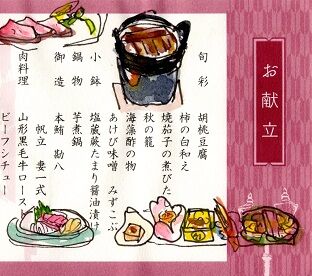 お献立
旬彩
胡桃豆腐
柿の白和え
焼茄子の煮びた
秋の籠
海藻酢の物
あけび味噌 みずこぶ
小鉢
塩蔵蕨たまり醤油漬け
鍋物
芋煮鍋
御造
本鮪 勘八
帆立 妻一式
肉料理
山形黒毛牛ロースト
ビーフシチュー